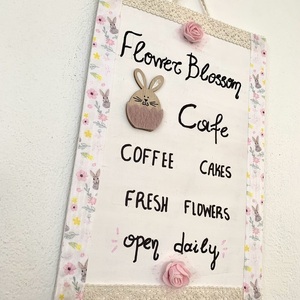 Flower Blossom
Cafe
COFFEE CAKES
FRESH FLOWERS
open daily